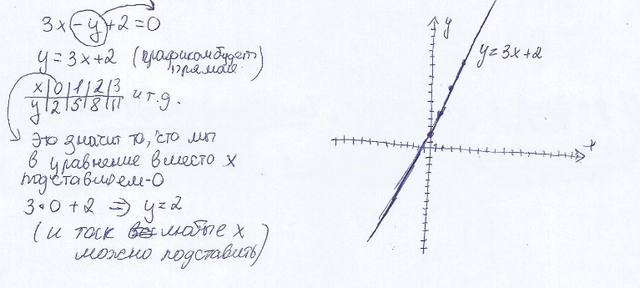 3x - y + 2 = 0
y = 3x + 2 (графиком будет
прямая)
x | 0 | 1 | 2 | 3
y | 2 | 5 | 8 | 11 и т.д.
Это значит то, что мы
в уравнение вместо x
подставляем - 0
3·0 + 2 ⇒ y = 2
(и так любые x
можно подставить)
y
y = 3x + 2
x